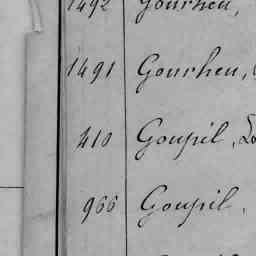 1492 Gourheu,
1491 Gourheu,
410 Goupil,
966 Goupil.